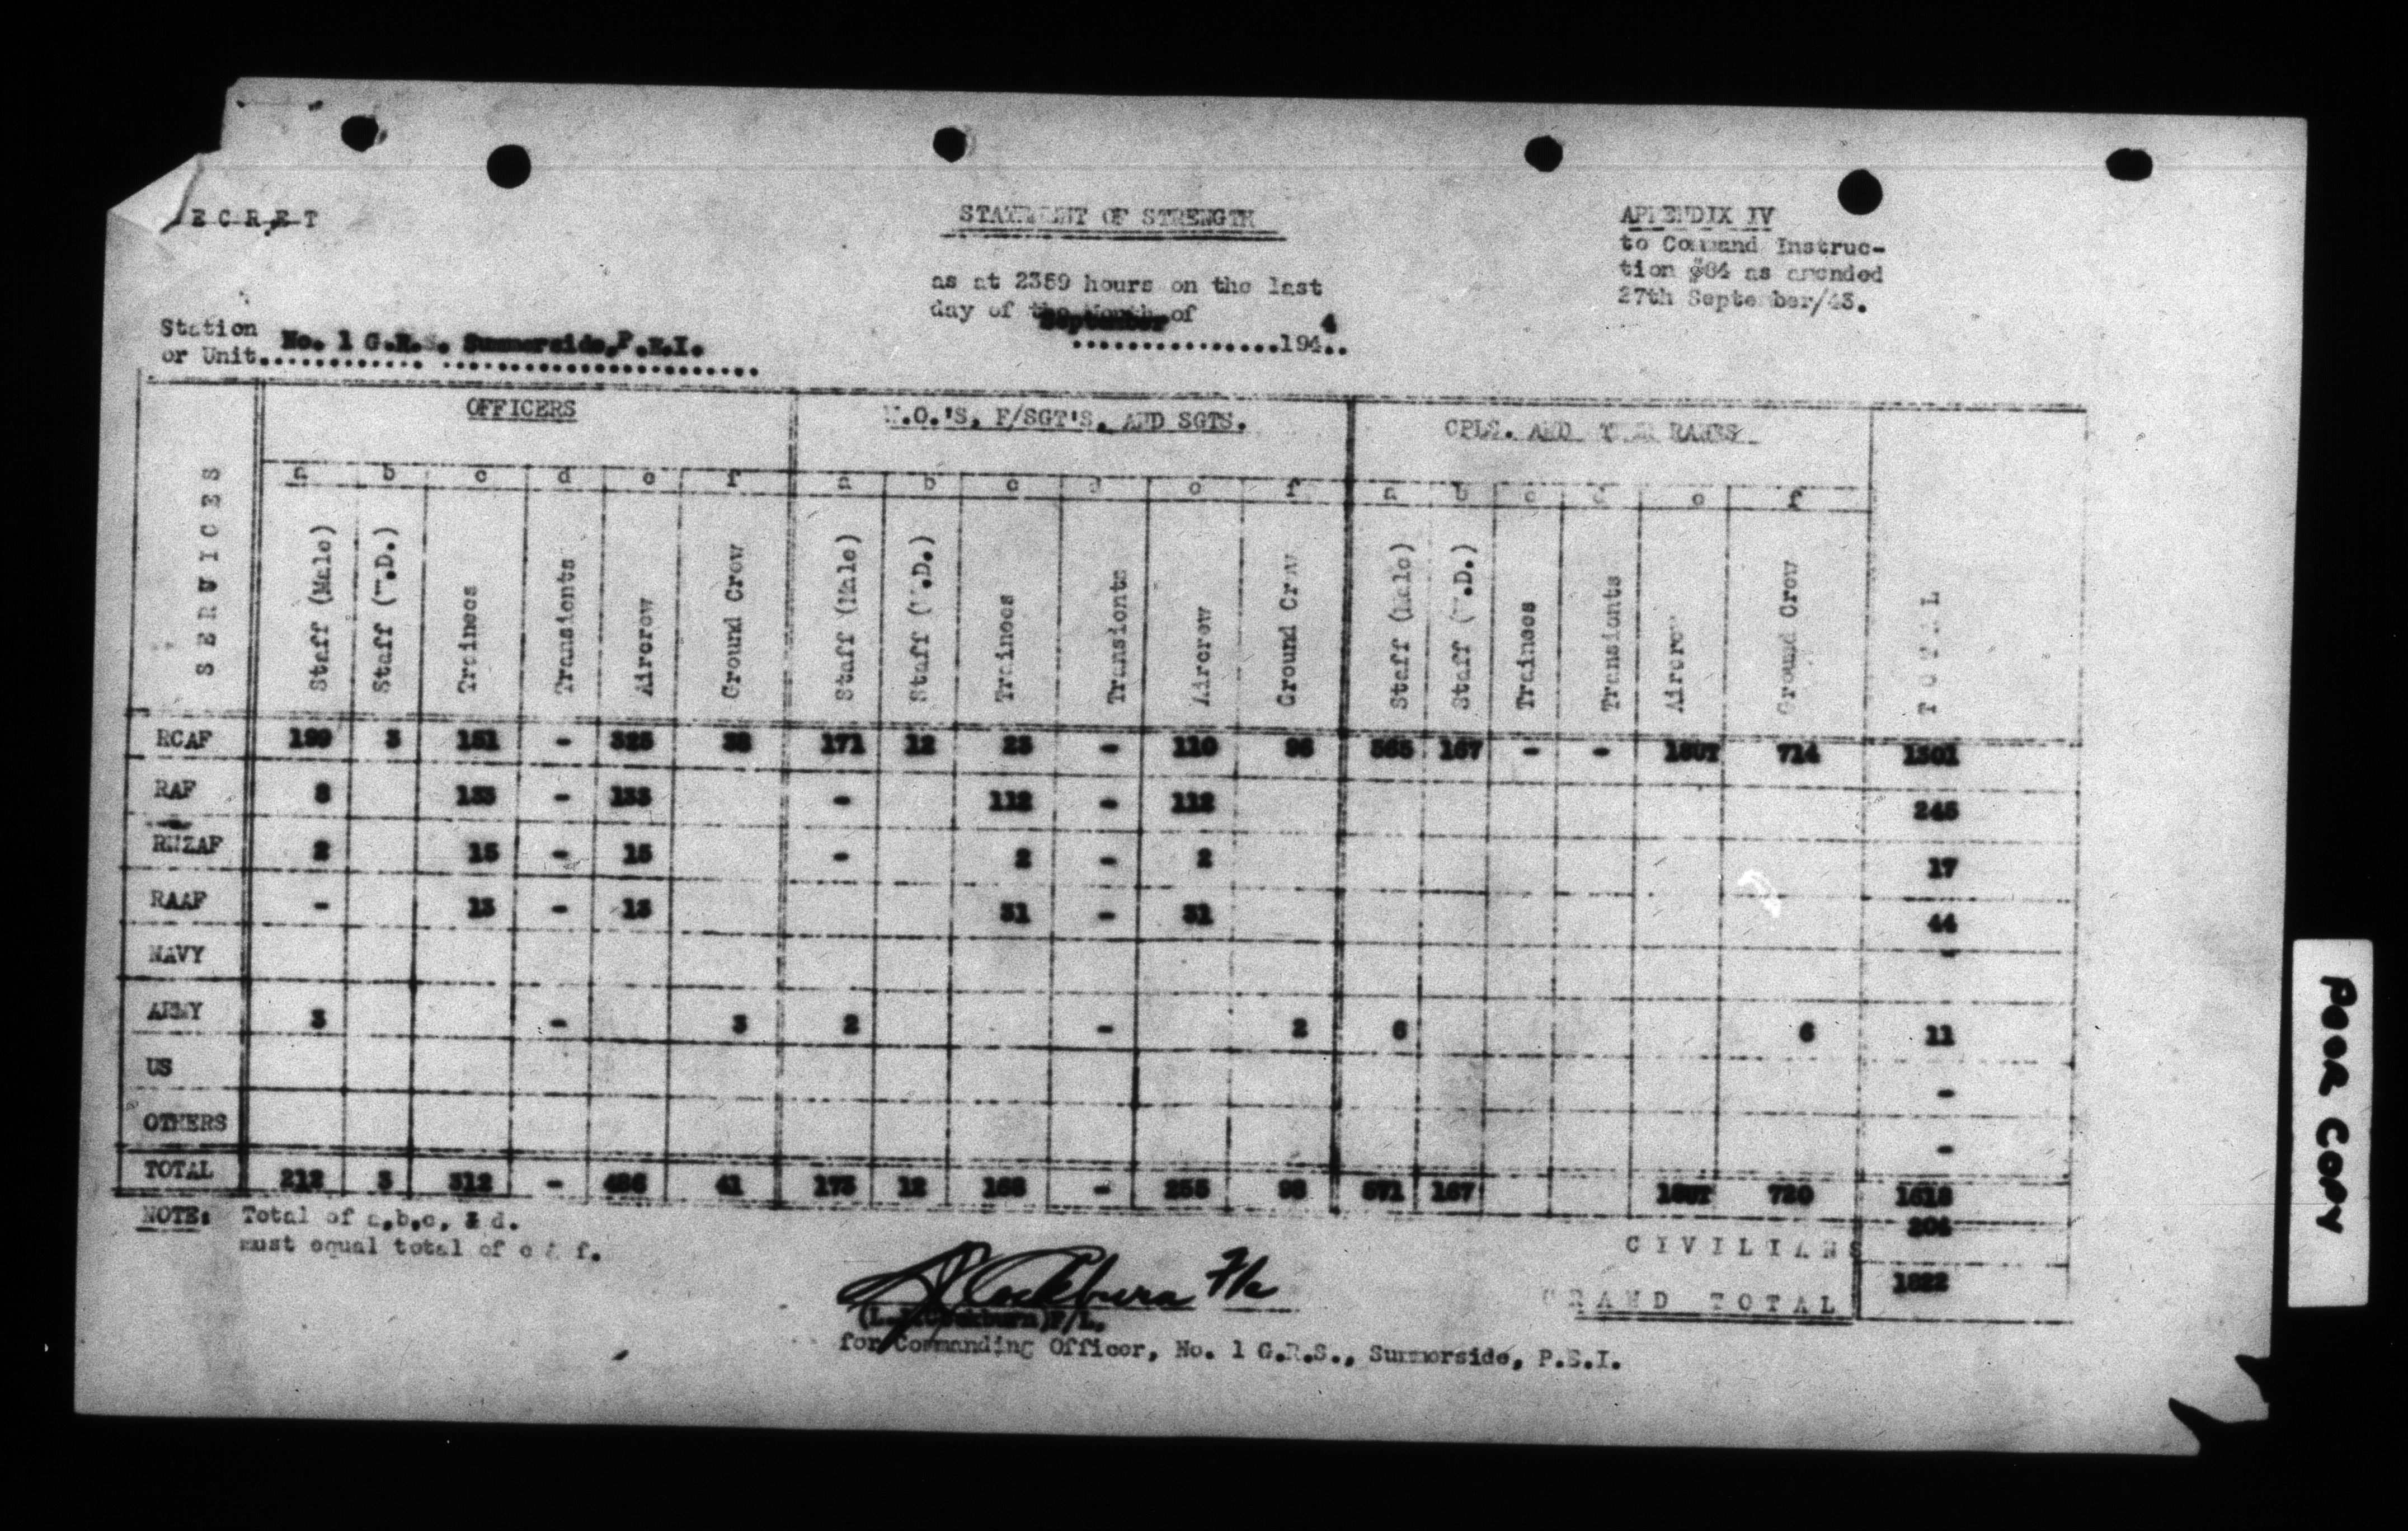 ECRET
STATEMENT OF STRENGTH
APPENDIX IV
to Command Instruc-
tion #84 as amended
27th September/43.
as at 2359 hours on the last
day of the Month of
September 1944
Station
or Unit No. 1 G.R.S. Summerside, P.E.I.
SERVICES OFFICERS W.O.'S, F/SGT'S, AND SGTS. CPLS. AND RANKS TOTAL
a b c d e f a b c d e f a b c d e f
Staff (Male) Staff (W.D.) Trainees Transients Aircrew Ground Crew Staff (Male) Staff (W.D.) Trainees Transients Aircrew Ground Crew Staff (Male) Staff (W.D.) Trainees Transients Aircrew Ground Crew
RCAF 199 3 151 - 325 38 171 12 23 - 110 96 565 167 - - 18UT 714 1301
RAF 8 133 - 133 - 112 - 112 245
RNZAF 2 15 - 15 - 2 - 2 17
RAAF - 13 - 13 31 - 31 44
NAVY -
ARMY 3 - 3 2 - 2 6 6 11
US -
OTHERS -
TOTAL 212 3 312 - 486 41 173 12 168 - 255 98 571 167 18UT 720 1618
NOTE: Total of a,b,c, & d.
must equal total of e & f.
CIVILIANS 204
GRAND TOTAL 1822
Cockburn F/L
Cockburn) F/L.
for Commanding Officer, No. 1 G.R.S., Summerside, P.E.I.
POOR COPY